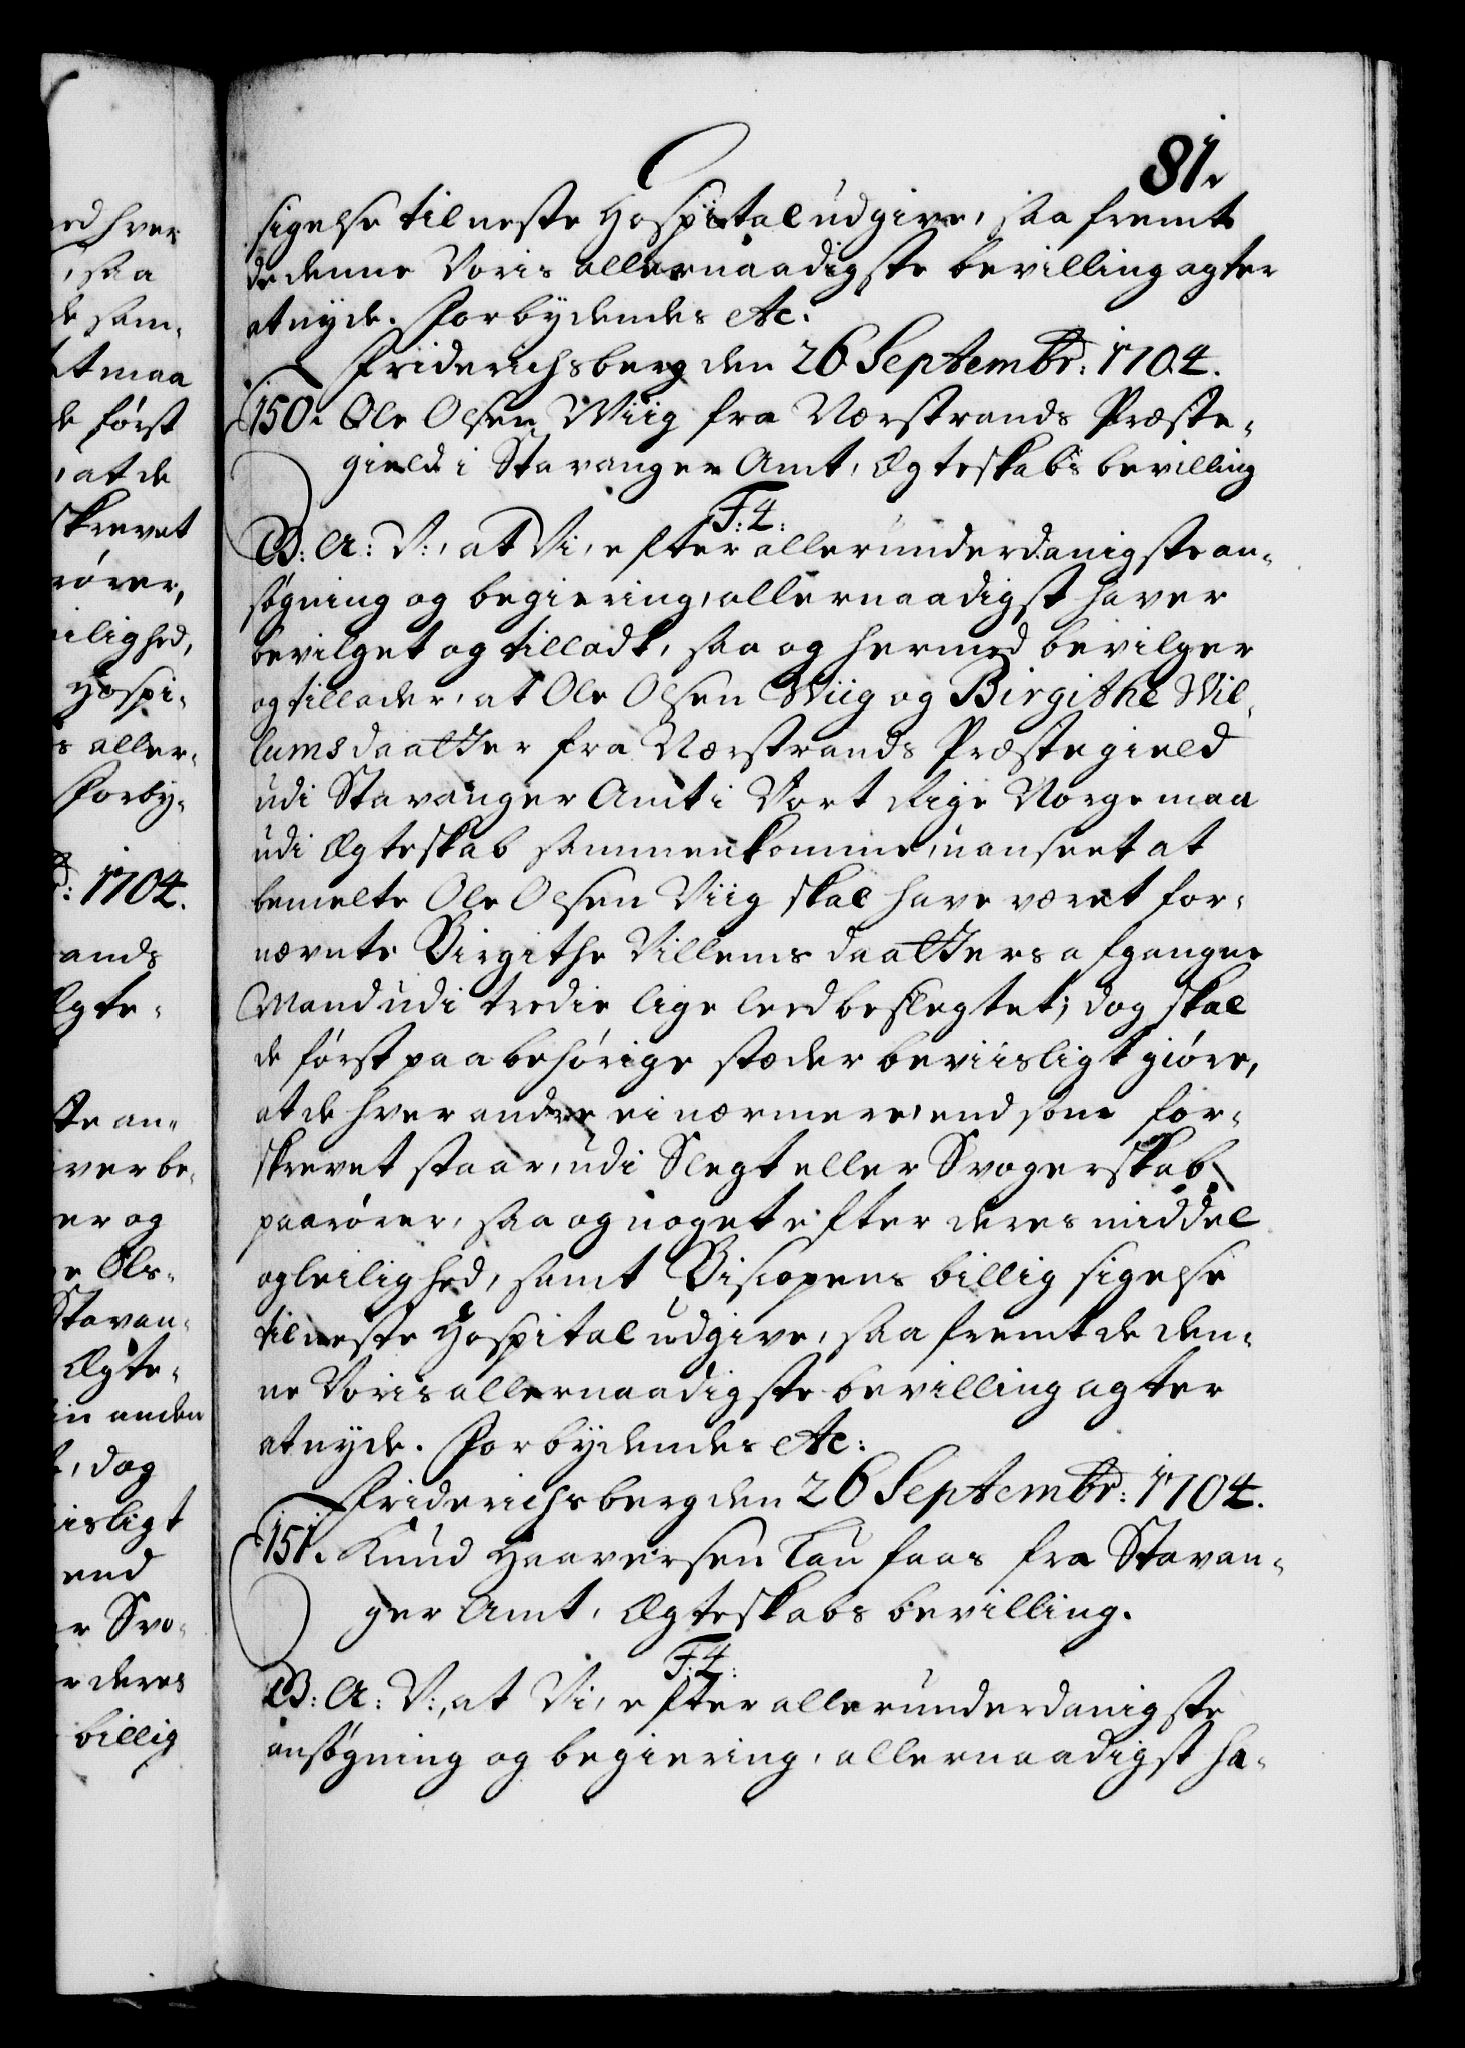 81.
sigelse til neste Hospital udgive, saa fremt
de denne Voris allernaadigste bevilling agter
at nyde. Forbydendes etc:
Friderichsberg den 26 Septembr: 1704.
150. Ole Olsen Wiig fra Nerstrands Præste-
gield i Stavanger Amt, Ægteskabs bevilling
F: 4:
B: A: V:, at Vi, efter allerunderdanigste an-
søgning og begiering, allernaadigst haver
bevilget og tilladt, saa og hermed bevilger
og tillader, at Ole Olsen Wiig og Birgithe Wil-
lumsdaatter fra Nerstrands Præstegield
udi Stavanger Amt i Vort Rige Norge maa
udi Ægteskab sammenkomme, uanseet at
bemelte Ole Olsen Viig skal have været for-
nævnte Birgithe Villems daatters afgangne
Mand udi tredie lige leed beslegtet; dog skal
de først paa behørige stæder beviisligt giøre,
at de hver andre ei nærmere, end som for-
skrevet staar, udi Slegt eller Svogerskab
paarører, saa og noget efter deres middel
og leilighed, samt Biscopens billig sigelse
til neste Hospital udgive, saa fremt de den-
ne Voris allernaadigste bevilling agter
at nyde. Forbydendes etc:
Friderichsberg den 26 Septembr: 1704.
151. Knud Haaversen Tau faas fra Stavan-
ger Amt, Ægteskabs bevilling.
F: 4:
B: A: V:, at Vi, efter allerunderdanigste
ansøgning og begiering, allernaadigst ha-